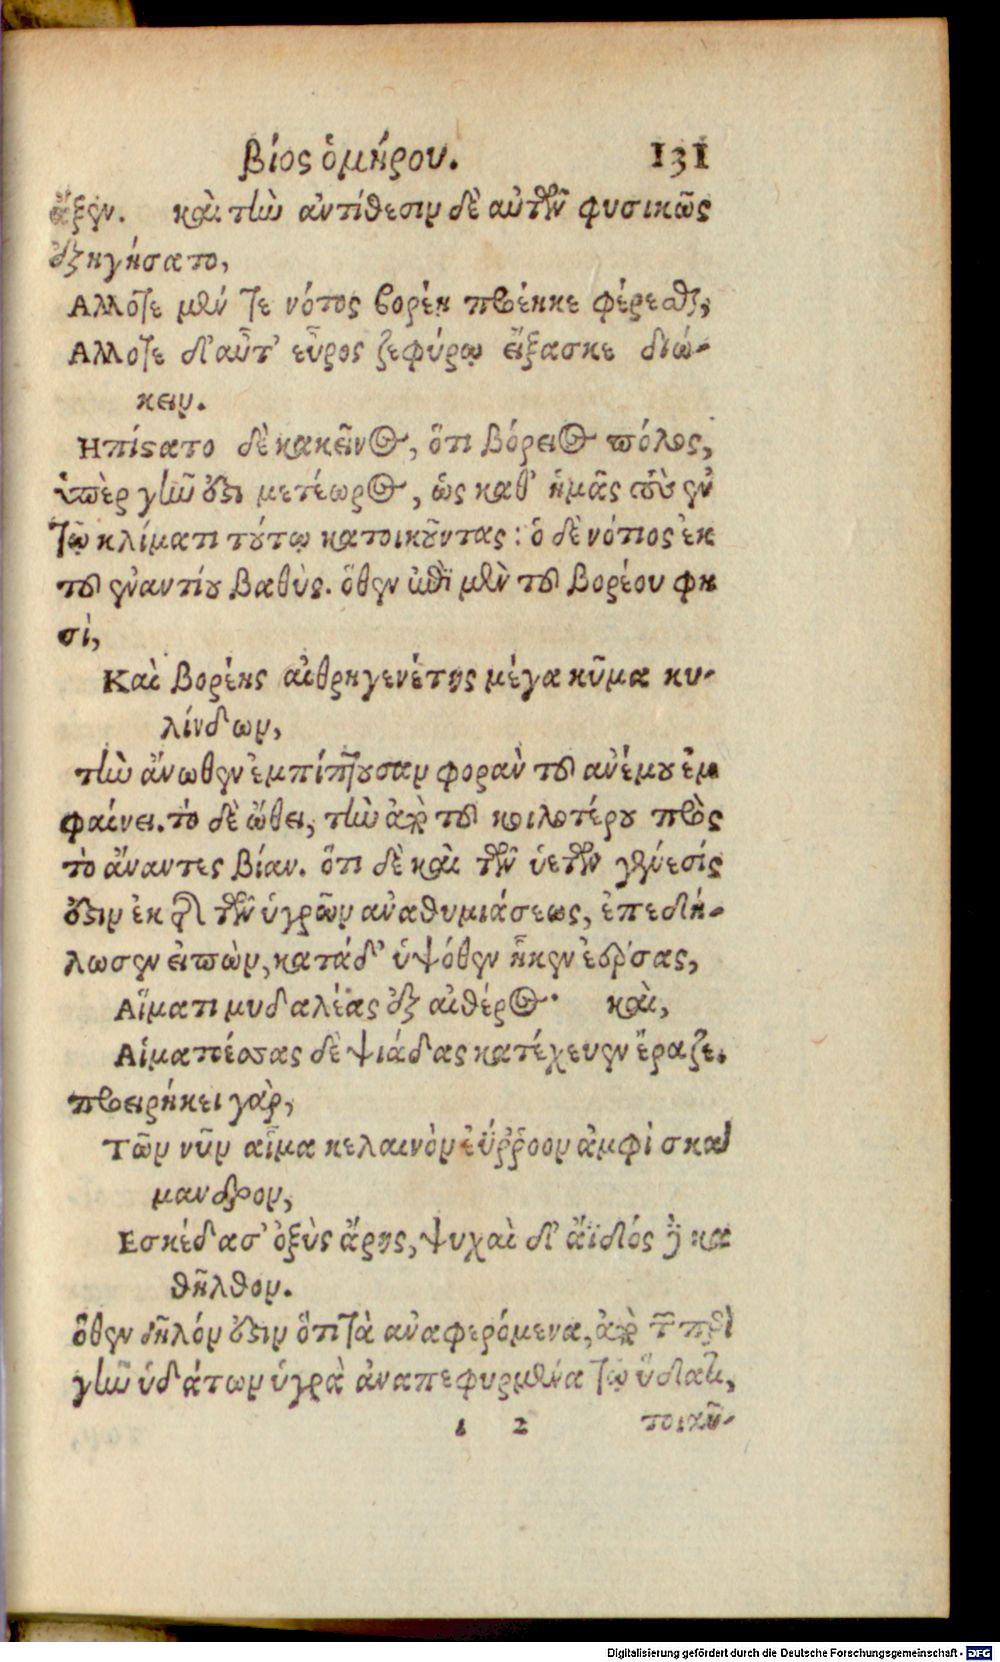 βίος ὁμήρου. 131
ἄξεν. καὶ τὴν ἀντίθεσιν δὲ αὐτῶν φυσικῶς
ἐξηγήσατο,
Αλλοτε μέν τε νότος βορέῃ προέηκε φέρεσθαι,
Αλλοτε δ' αὖτ' εὖρος ζεφύρῳ εἴξασκε διώ-
κειν.
Ηπίστατο δὲ κακεῖνος, ὅτι βόρειος πόλος,
ὑπὲρ γῆν ἐστι μετέωρος, ὡς καθ' ἡμᾶς τοὺς ἐν
τῷ κλίματι τούτῳ κατοικοῦντας: ὁ δὲ νότιος ἐκ
τοῦ ἐναντίου βαθὺς. ὅθεν ἐπὶ μὲν τοῦ βορέου φη
σὶ,
Καὶ βορέης αἰθρηγενέτης μέγα κῦμα κυ-
λίνδων,
τὴν ἄνωθεν ἐμπίπτουσαν φορὰν τοῦ ἀνέμου ἐμ
φαίνει. τὸ δὲ ὤθει, τὴν ἀπὸ τοῦ κοιλοτέρου πρὸς
τὸ ἄναντες βίαν. ὅτι δὲ καὶ τῶν ὑετῶν γένεσίς
ἐστιν ἐκ τῆς τῶν ὑγρῶν ἀναθυμιάσεως, ἐπεδή-
λωσεν εἰπὼν, κατὰ δ' ὑψόθεν ἧκεν ἐέρσας,
Αἵματι μυδαλέας ἐξ αἰθέρος. καὶ,
Αἱματοέσσας δὲ ψιάδας κατέχευεν ἔραζε.
προειρήκει γὰρ,
Τῶν νῦν αἷμα κελαινὸν ἐΰῤῥοον ἀμφὶ σκα
μανδρον,
Εσκέδασ' ὀξὺς ἄρης, ψυχαὶ δ' ἄϊδός δὲ κα
θῆλθον.
ὅθεν δῆλόν ἐστιν ὅτι τὰ ἀναφερόμενα, ἀπὸ τῶν περὶ
γῆν ὑδάτων ὑγρὰ ἀναπεφυρμένα τῷ ὕδατι,
ι 2 τοιαῦ-
Digitalisierung gefördert durch die Deutsche Forschungsgemeinschaft - DFG